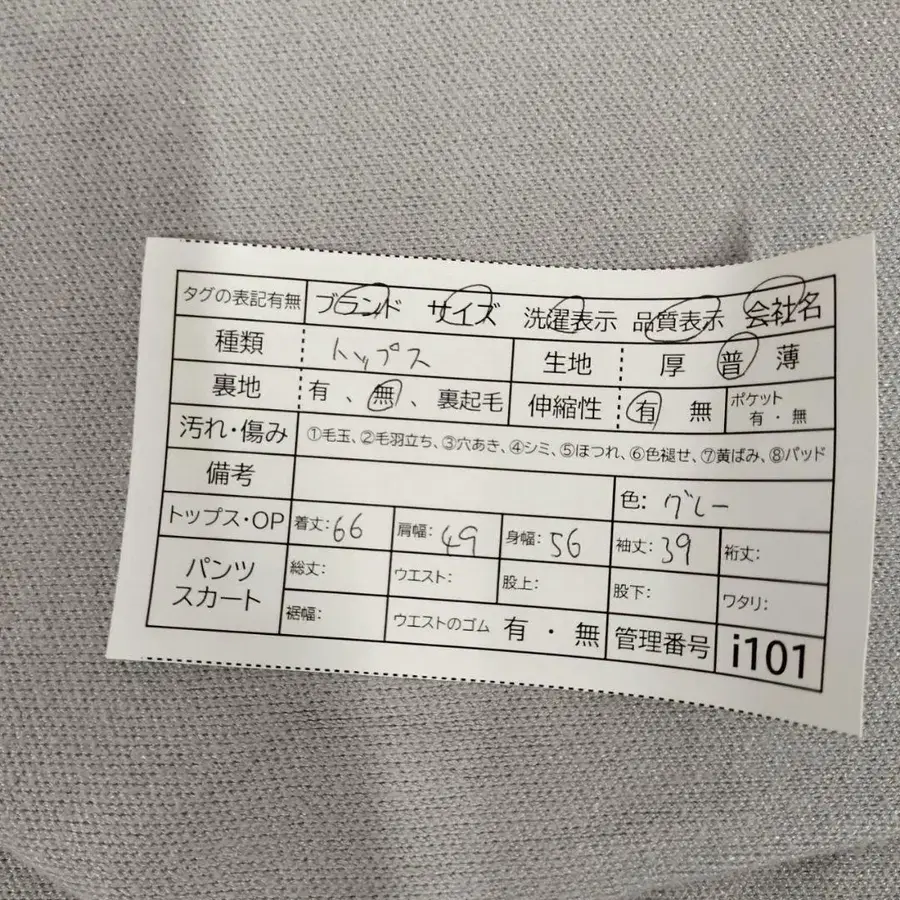 タグの表記有無 ブランド サイズ 洗濯表示 品質表示 会社名
種類 トップス 生地 厚 普 薄
裏地 有、無、裏起毛 伸縮性 有 無 ポケット 有・無
汚れ・傷み ①毛玉、②毛羽立ち、③穴あき、④シミ、⑤ほつれ、⑥色褪せ、⑦黄ばみ、⑧パッド
備考 色: グレー
トップス・OP 着丈:66 肩幅:49 身幅:56 袖丈:39 裄丈:
パンツ スカート 総丈: ウエスト: 股上: 股下: ワタリ:
裾幅: ウエストのゴム 有・無 管理番号 i101